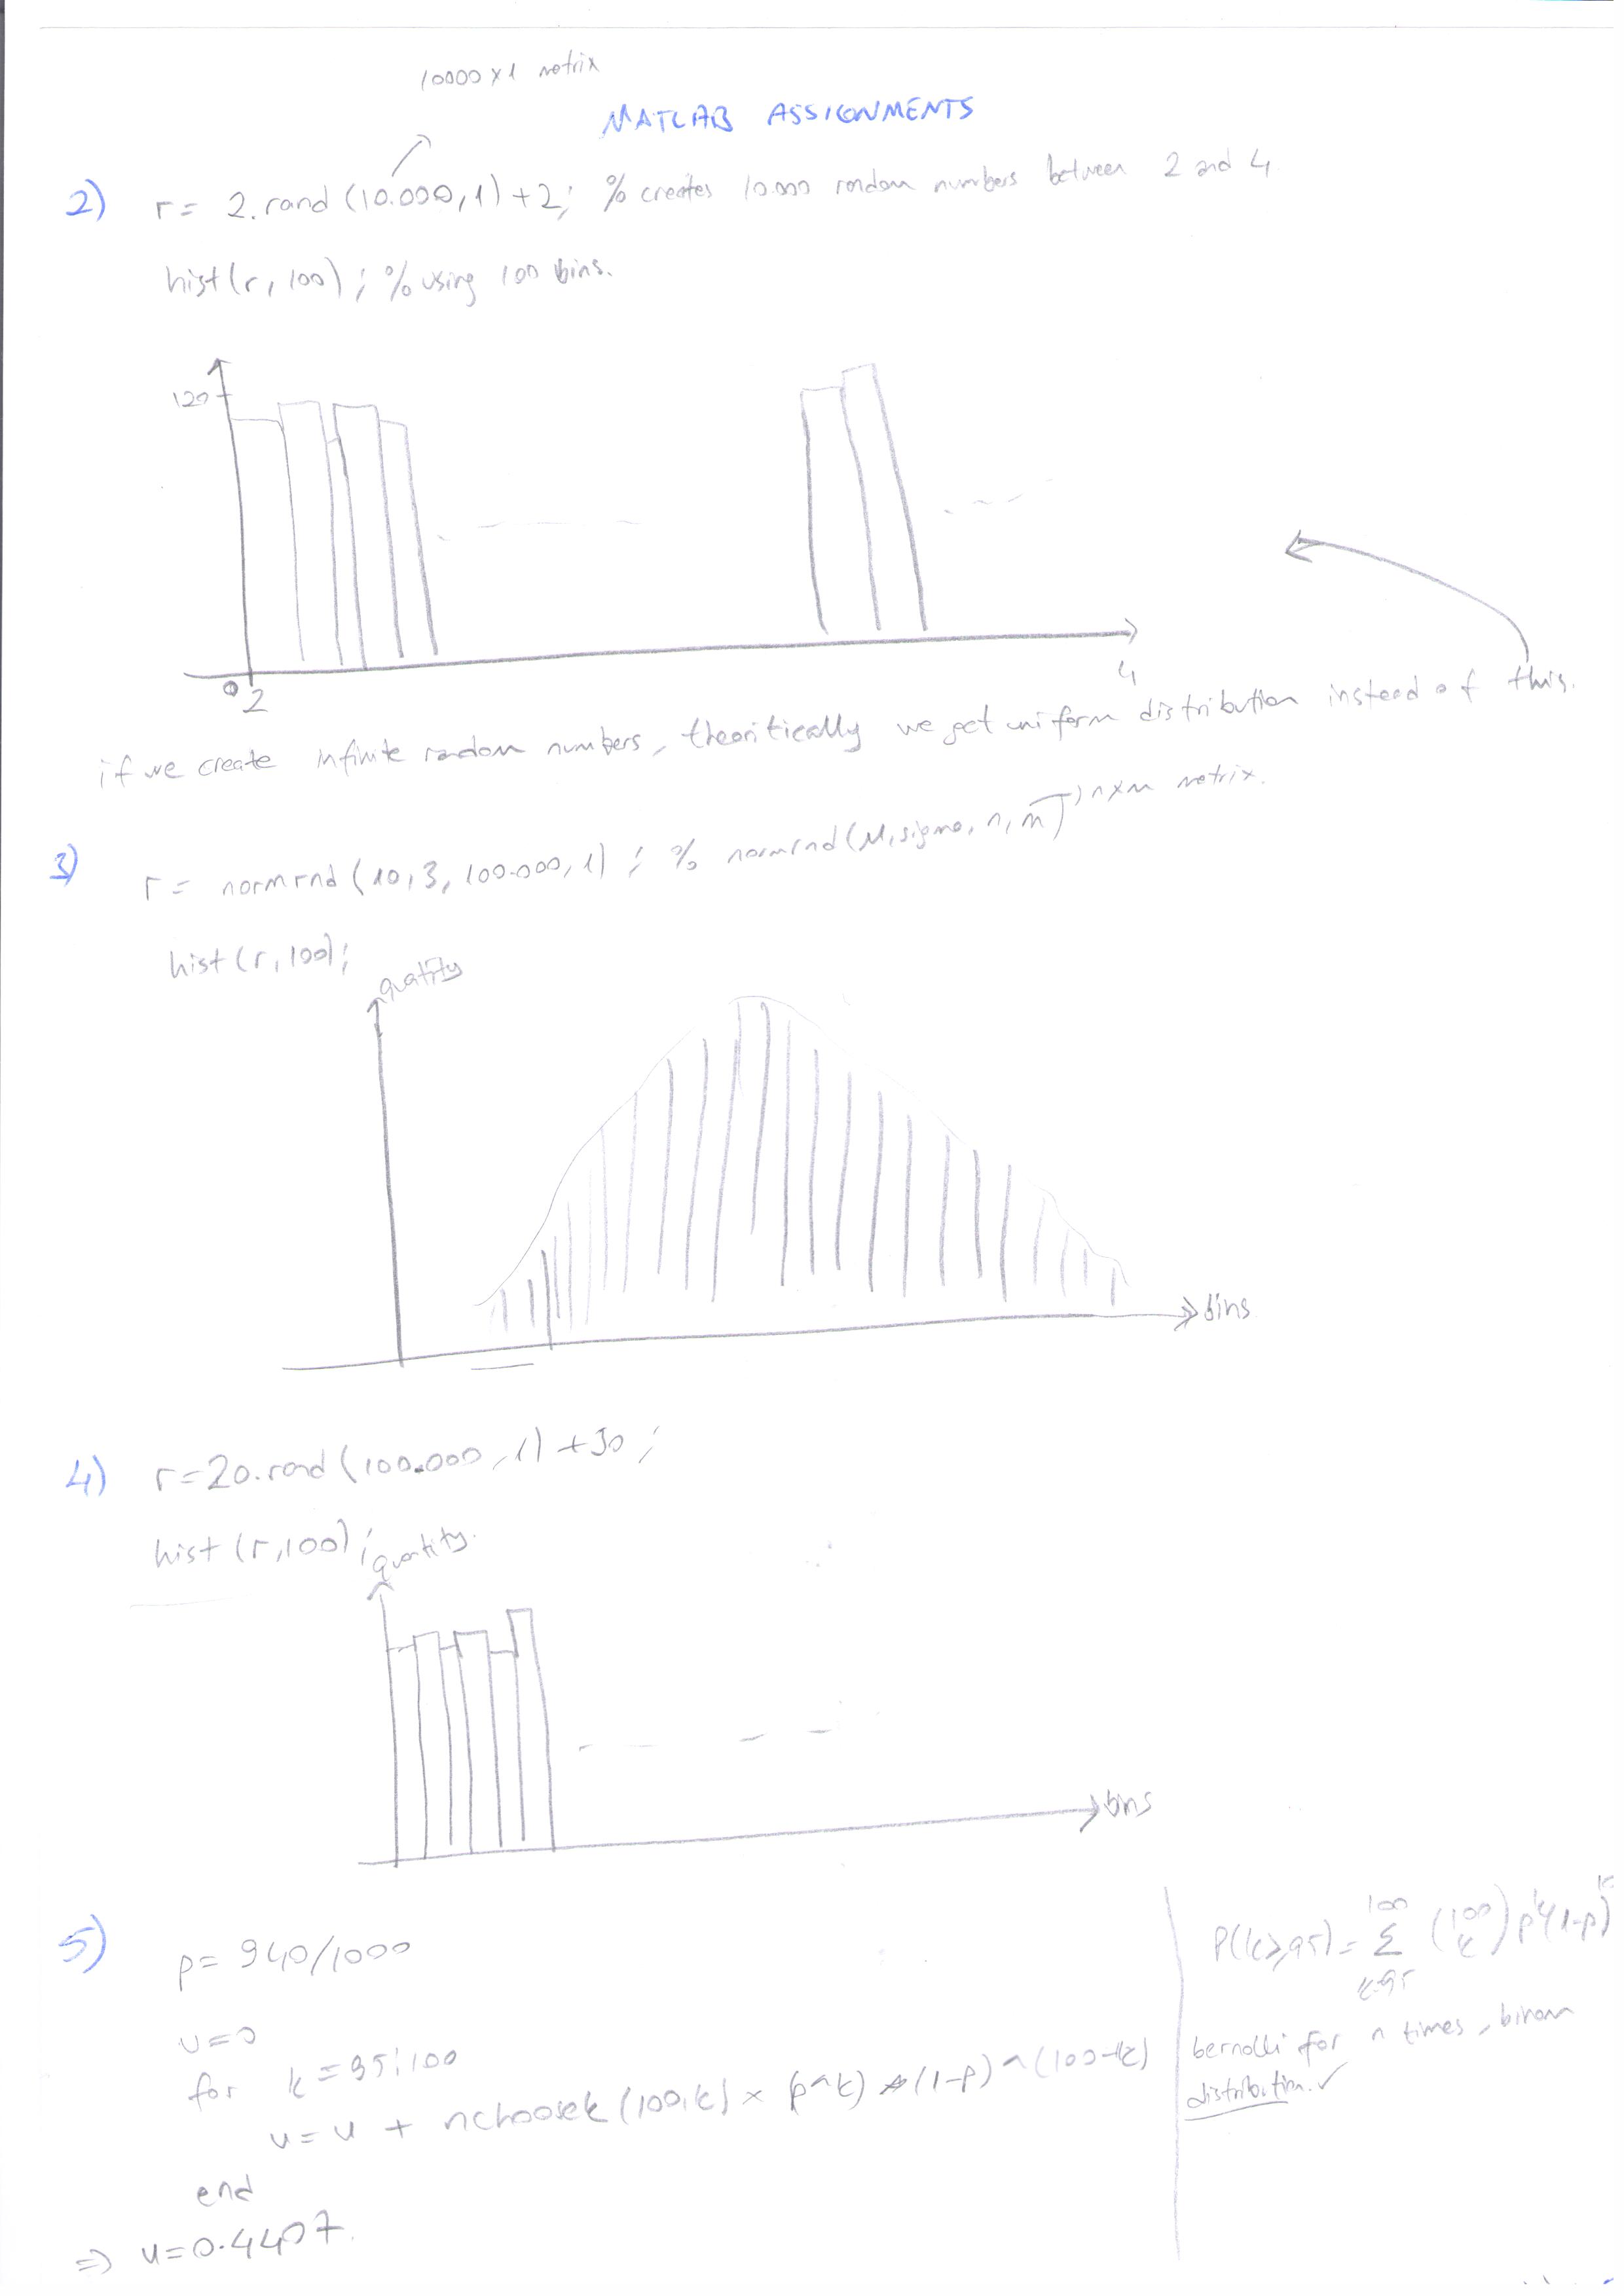 10000 x 1 matrix
MATLAB ASSIGNMENTS
2) r = 2.rand (10.000, 1) + 2; % creates 10.000 random numbers between 2 and 4
hist(r, 100); % using 100 bins.
120
0 2
4
if we create infinite random numbers, theoritically we get uniform distribution instead of this.
3) r = normrnd (10, 3, 100.000, 1); % normrnd (M, sigma, n, m) nxm matrix.
hist(r, 100);
quatity
bins
4) r = 20.rand (100.000, 1) + 30;
hist (r, 100);
quantity.
bins
5) p = 940/1000
u = 0
for k = 95:100
u = u + nchoosek (100,k) x (p^k) * (1-p) ^ (100-k)
end
=> u = 0.4407.
P(k≥95) = 100 Σ k=95 (100 k) p^k (1-p)
bernolli for n times, binom
distribution. ✓